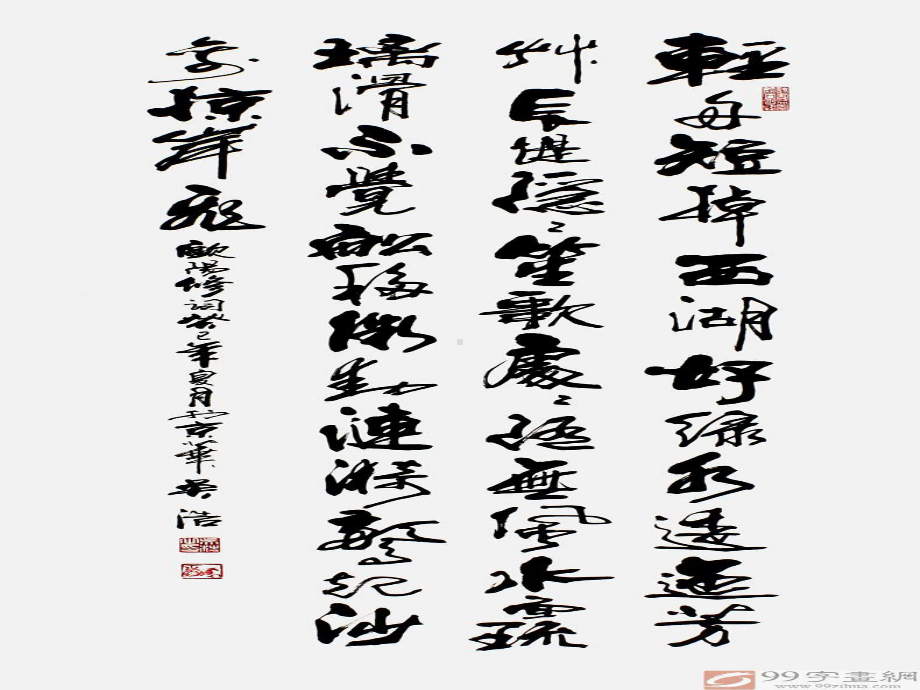 輕舟短棹西湖好綠水逶迤芳
艸長堤隱〻笙歌處〻隨無風水琉
璃滑不覺船移微動漣漪驚起沙
禽掠岸飛 歐陽修詞癸巳年夏月於京華 吳浩
99字畫網
www.99zihua.com